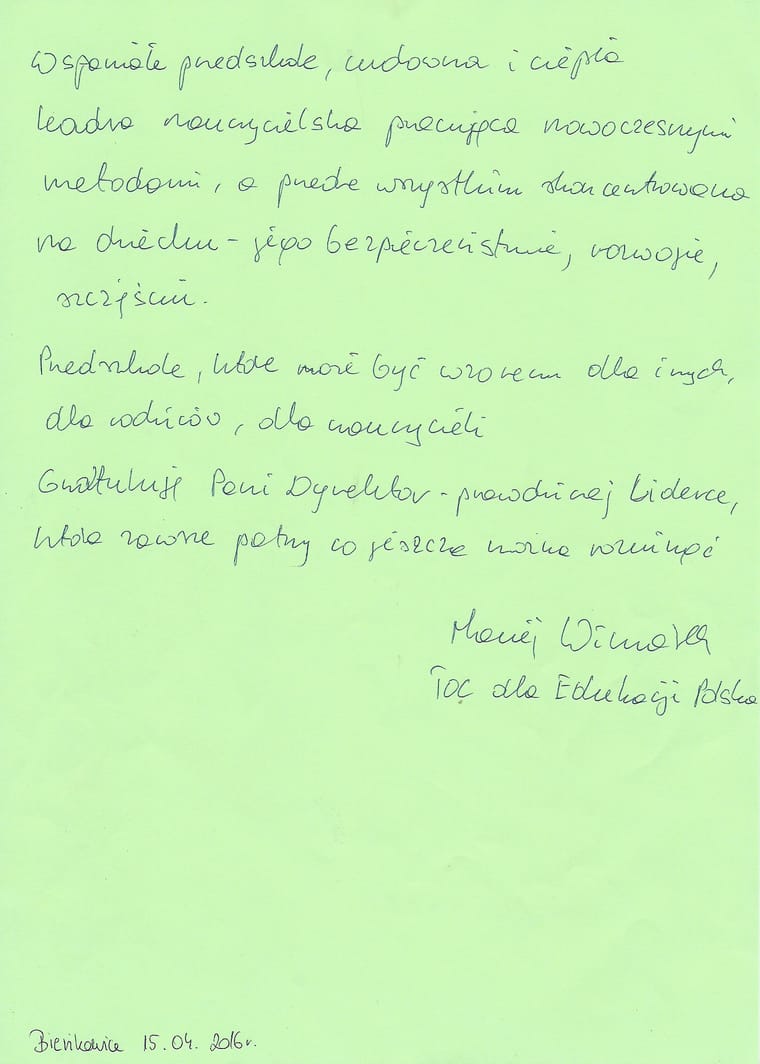 Wspaniałe przedszkole, cudowna i ciepła
kadra nauczycielska pracująca nowoczesnymi
metodami, a przede wszystkim skoncentrowana
na dziecku - jego bezpieczeństwie, rozwoju,
szczęściu.
Przedszkole, które może być wzorem dla innych,
dla rodziców, dla nauczycieli
Gratuluję Pani Dyrektor - prawdziwej Liderce,
która zawsze patrzy co jeszcze można rozwinąć
Maciej Winiarek
TOC dla Edukacji Polska
Bieńkowice 15.04. 2016r.